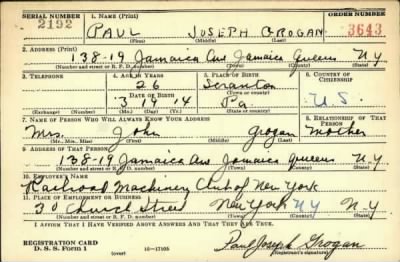 SERIAL NUMBER 1. NAME (Print) ORDER NUMBER
2192 PAUL JOSEPH GROGAN 3643
(First) (Middle) (Last)
2. ADDRESS (Print)
138-19 Jamaica Ave Jamaica Queens N.Y
(Number and street or R. F. D. number) (Town) (County) (State)
3. TELEPHONE 4. AGE IN YEARS 5. PLACE OF BIRTH 6. COUNTRY OF CITIZENSHIP
26 Scranton
DATE OF BIRTH (Town or county)
3 19 14 Pa. U.S.
(Exchange) (Number) (Mo.) (Day) (Yr.) (State or country)
7. NAME OF PERSON WHO WILL ALWAYS KNOW YOUR ADDRESS 8. RELATIONSHIP OF THAT PERSON
Mrs. John Grogan Mother
(Mr., Mrs., Miss) (First) (Middle) (Last)
9. ADDRESS OF THAT PERSON
138-19 Jamaica Ave Jamaica Queens N.Y
(Number and street or R. F. D. number) (Town) (County) (State)
10. EMPLOYER'S NAME
Railroad Machinery Club of New York
11. PLACE OF EMPLOYMENT OR BUSINESS
30 Church Street New York NY N-Y
(Number and street or R. F. D. number) (Town) (County) (State)
I AFFIRM THAT I HAVE VERIFIED ABOVE ANSWERS AND THAT THEY ARE TRUE.
REGISTRATION CARD
D. S. S. Form 1 (over) 16-17105 Paul Joseph Grogan
(Registrant's signature)